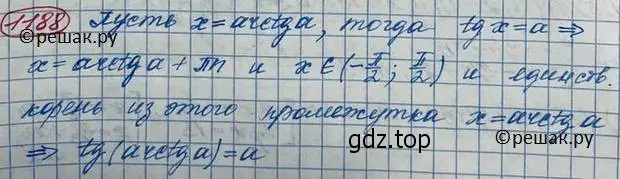 1188 Пусть x = arctg a, тогда tg x = a ⇒
©решак.ру
x = arctg a + πn и x ∈ (-π/2; π/2) и единств.
корень из этого промежутка x = arctg a
⇒ tg(arctg a) = a
гдз.top
©решак.ру